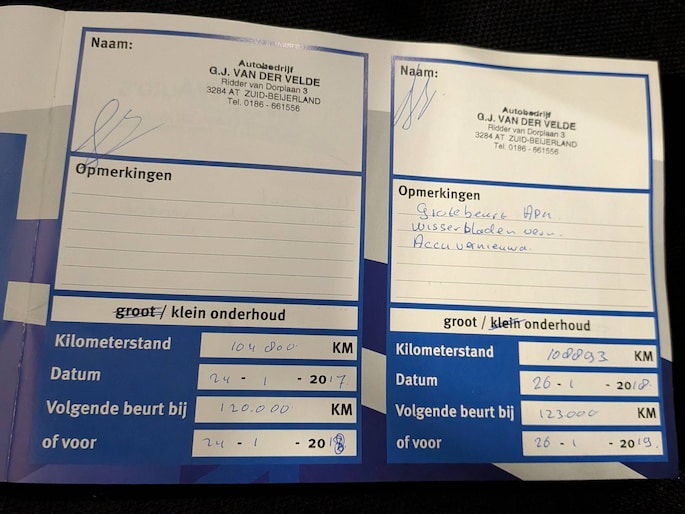 Naam:
Autobedrijf
G.J. VAN DER VELDE
Ridder van Dorplaan 3
3284 AT ZUID-BEIJERLAND
Tel. 0186 - 661556
Opmerkingen
groot / klein onderhoud
Kilometerstand 104800 KM
Datum 24 - 1 - 2017
Volgende beurt bij 120.000 KM
of voor 24 - 1 - 2018
Naam:
Autobedrijf
G.J. VAN DER VELDE
Ridder van Dorplaan 3
3284 AT ZUID-BEIJERLAND
Tel. 0186 - 661556
Opmerkingen
Grote beurt APK.
wisserbladen vern.
Accu vernieuwd.
groot / klein onderhoud
Kilometerstand 108893 KM
Datum 26 - 1 - 2018.
Volgende beurt bij 123000 KM
of voor 26 - 1 - 2019.